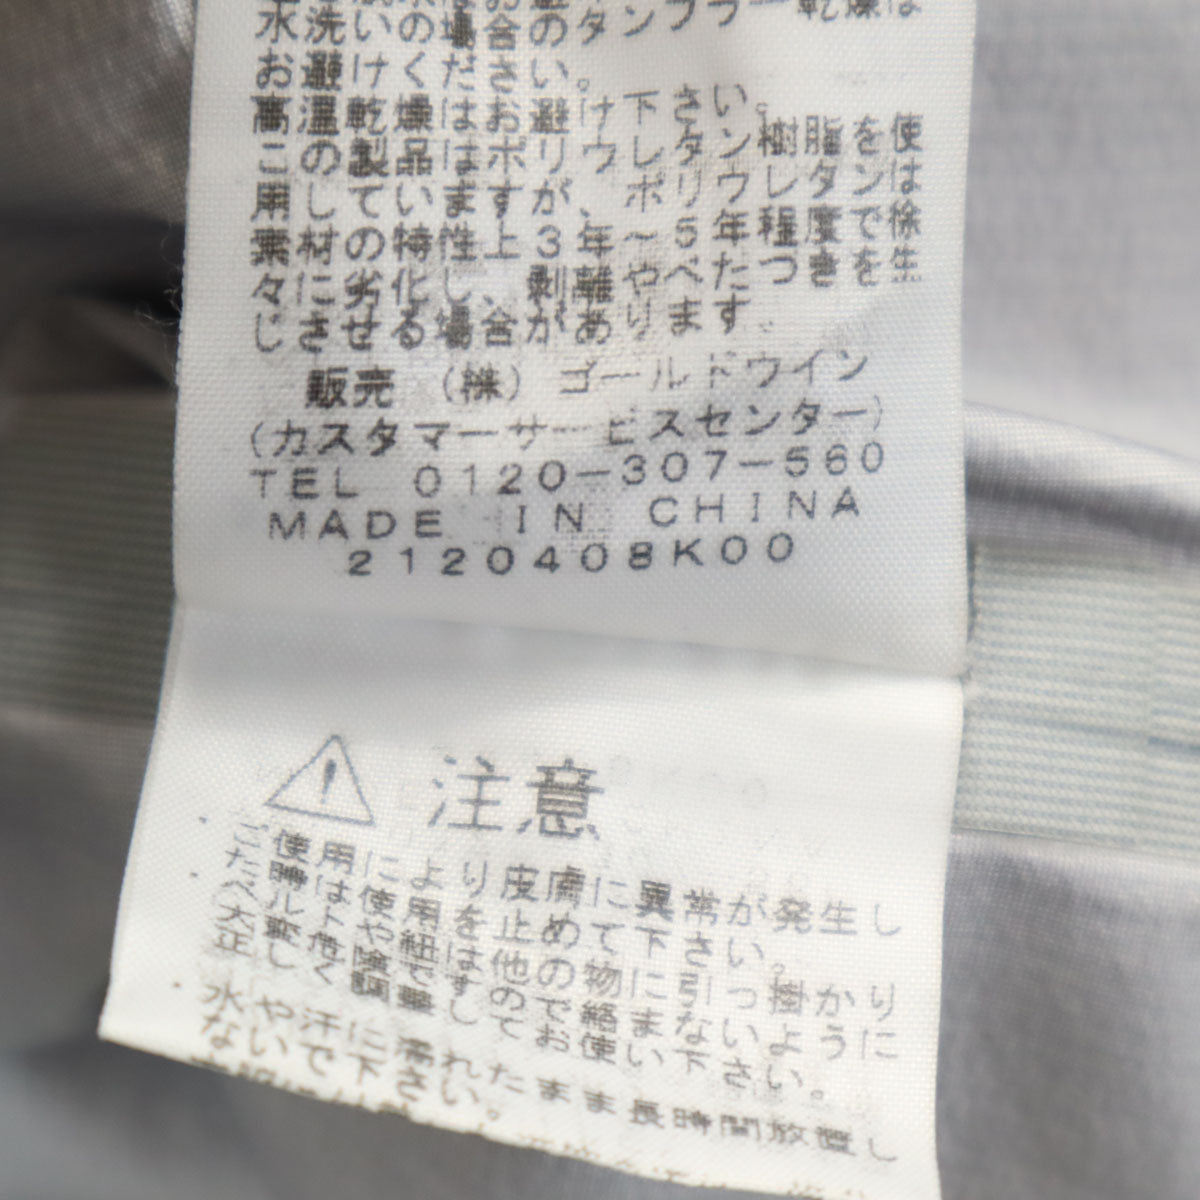 水洗いの場合のタンブラー乾燥は
お避けください。
高温乾燥はお避け下さい。
この製品はポリウレタン樹脂を使
用しています、ポリウレタンは
素材の特性上、3年～5年程度で徐
々に劣化し、剥離やべたつきを生
じさせる場合があります
販売（株）ゴールドウイン
（カスタマーサービスセンター）
TEL 0120-307-560
MADE IN CHINA
2120408K00
注意
ご使用により皮膚に異常が発生し
た時は使用を止めて下さい。
ベルトや紐は他の物に引っ掛かり
大変危険ですので絡まないように
正しく調整してお使い下さい。
水や汗に濡れたまま長時間放置し
ないで下さい。